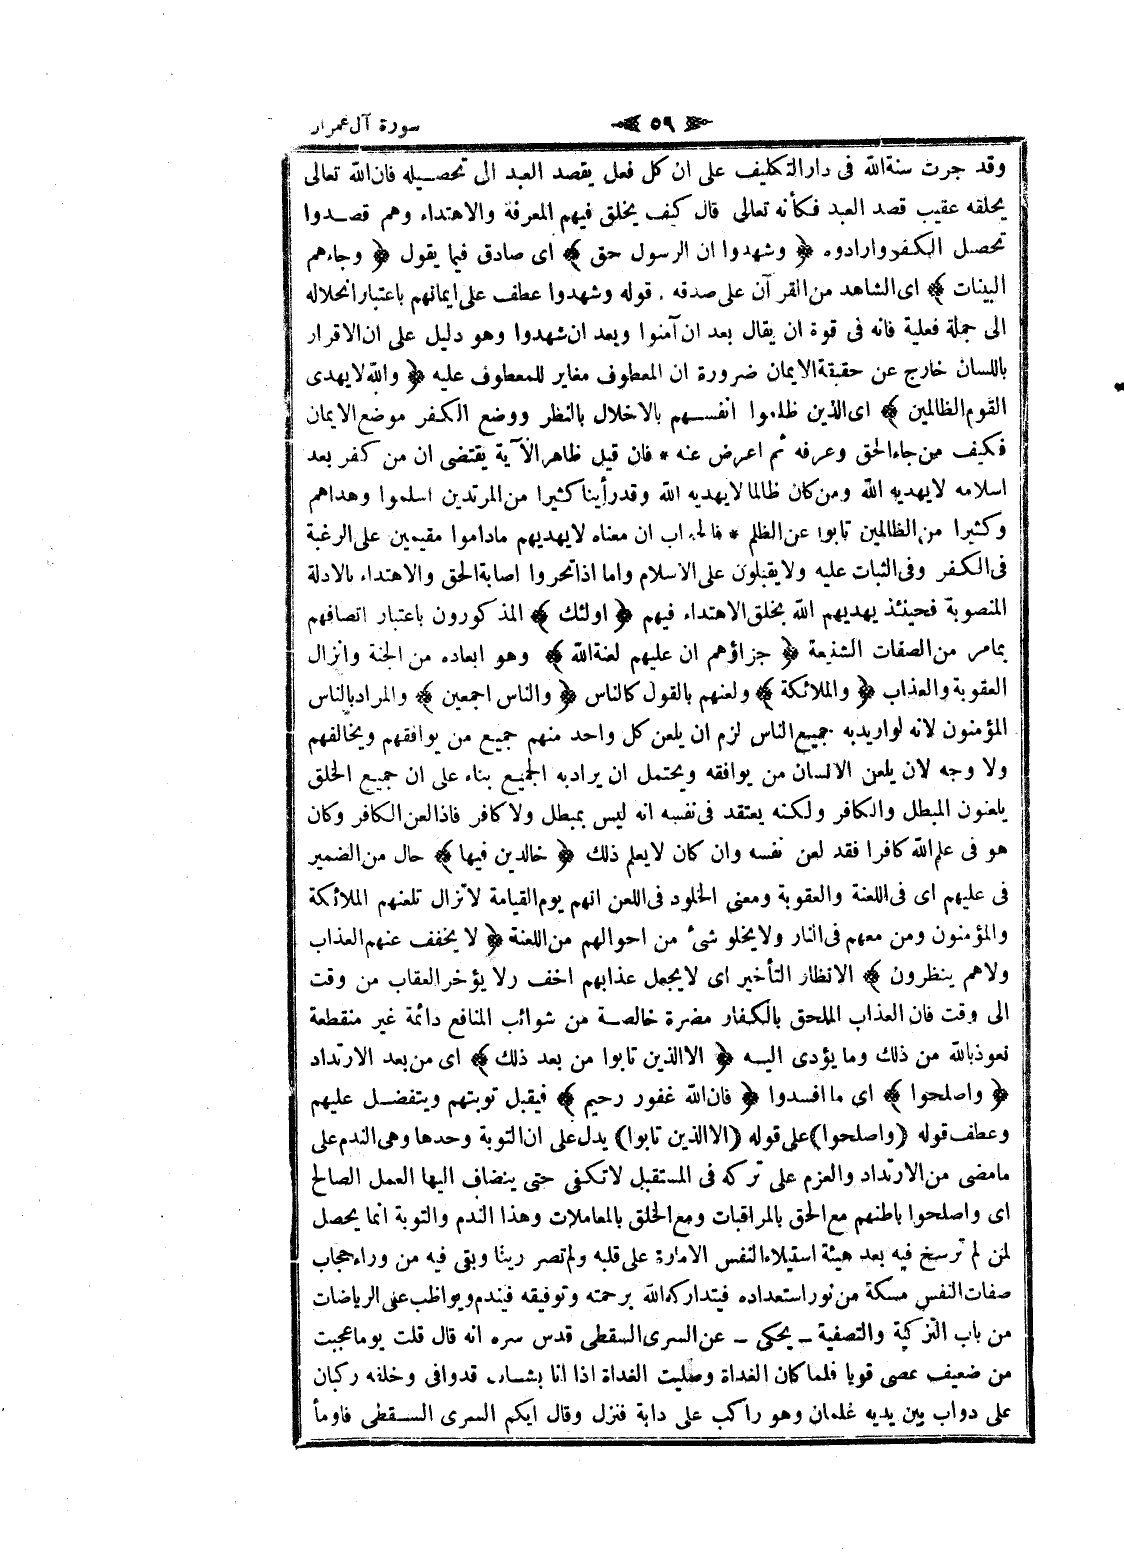 سورة آل عمران ﴿ ٥٩ ﴾
وقد جرت سنة الله فى دار التكليف على ان كل فعل يقصد العبد الى تحصيله فان الله تعالى
يخلقه عقيب قصد العبد فكأنه تعالى قال كيف يخلق فيهم المعرفة والاهتداء وهم قصدوا
تحصل الكفر وارادوه ﴿ وشهدوا ان الرسول حق ﴾ اى صادق فيما يقول ﴿ وجاءهم
البينات ﴾ اى الشاهد من القرآن على صدقه . قوله وشهدوا عطف على ايمانهم باعتبار انحلاله
الى جملة فعلية فانه فى قوة ان يقال بعد ان آمنوا وبعد ان شهدوا وهو دليل على ان الاقرار
باللسان خارج عن حقيقة الايمان ضرورة ان المعطوف مغاير للمعطوف عليه ﴿ والله لا يهدى
القوم الظالمين ﴾ اى الذين ظلموا انفسهم بالاخلال بالنظر ووضع الكفر موضع الايمان
فكيف من جاءه الحق وعرفه ثم اعرض عنه * فان قيل ظاهر الآية يقتضى ان من كفر بعد
اسلامه لا يهديه الله ومن كان ظالما لا يهديه الله وقد رأينا كثيرا من المرتدين اسلموا وهداهم
وكثيرا من الظالمين تابوا عن الظلم * فالجواب ان معناه لا يهديهم ماداموا مقيمين على الرغبة
فى الكفر وفى الثبات عليه ولا يقبلون على الاسلام واما اذا تحروا اصابة الحق والاهتداء بالادلة
المنصوبة فحينئذ يهديهم الله بخلق الاهتداء فيهم ﴿ اولئك ﴾ المذكورون باعتبار اتصافهم
بمامر من الصفات الشنيعة ﴿ جزاؤهم ان عليهم لعنة الله ﴾ وهو ابعاده من الجنة وانزال
العقوبة والعذاب ﴿ والملائكة ﴾ ولعنهم بالقول كالناس ﴿ والناس اجمعين ﴾ والمراد بالناس
المؤمنون لانه لو اريد به جميع الناس لزم ان يلعن كل واحد منهم جميع من يوافقهم ويخالفهم
ولا وجه لان يلعن الانسان من يوافقه ويحتمل ان يراد به الجميع بناء على ان جميع الخلق
يلعنون المبطل والكافر ولكنه يعتقد فى نفسه انه ليس بمبطل ولا كافر فاذا لعن الكافر وكان
هو فى علم الله كافرا فقد لعن نفسه وان كان لا يعلم ذلك ﴿ خالدين فيها ﴾ حال من الضمير
فى عليهم اى فى اللعنة والعقوبة ومعنى الخلود فى اللعن انهم يوم القيامة لا تزال تلعنهم الملائكة
والمؤمنون ومن معهم فى النار ولا يخلو شىء من احوالهم من اللعنة ﴿ لا يخفف عنهم العذاب
ولا هم ينظرون ﴾ الانظار التأخير اى لا يجعل عذابهم اخف ولا يؤخر العقاب من وقت
الى وقت فان العذاب الملحق بالكفار مضرة خالصة من شوائب المنافع دائمة غير منقطعة
نعوذ بالله من ذلك وما يؤدى اليه ﴿ الا الذين تابوا من بعد ذلك ﴾ اى من بعد الارتداد
﴿ واصلحوا ﴾ اى ما افسدوا ﴿ فان الله غفور رحيم ﴾ فيقبل توبتهم ويتفضل عليهم
وعطف قوله (واصلحوا) على قوله (الا الذين تابوا) يدل على ان التوبة وحدها وهى الندم على
مامضى من الارتداد والعزم على تركه فى المستقبل لا تكفى حتى ينضاف اليها العمل الصالح
اى واصلحوا باطنهم مع الحق بالمراقبات ومع الخلق بالمعاملات وهذا الندم والتوبة انما يحصل
لمن لم ترسخ فيه بعد هيئة استيلاء النفس الامارة على قلبه ولم تصر رينا وبقى فيه من وراء حجاب
صفات النفس مسكة من نور استعداده فيتداركه الله برحمته وتوفيقه فيندم ويواظب على الرياضات
من باب التزكية والتصفية ـ يحكى ـ عن السرى السقطى قدس سره انه قال قلت يوما عجبت
من ضعيف عصى قويا فلما كان الغداة وصليت الغداة اذا انا بشاب قد وافى وخلفه ركبان
على دواب بين يديه غلمان وهو راكب على دابة فنزل وقال ايكم السرى السقطى فاومأ